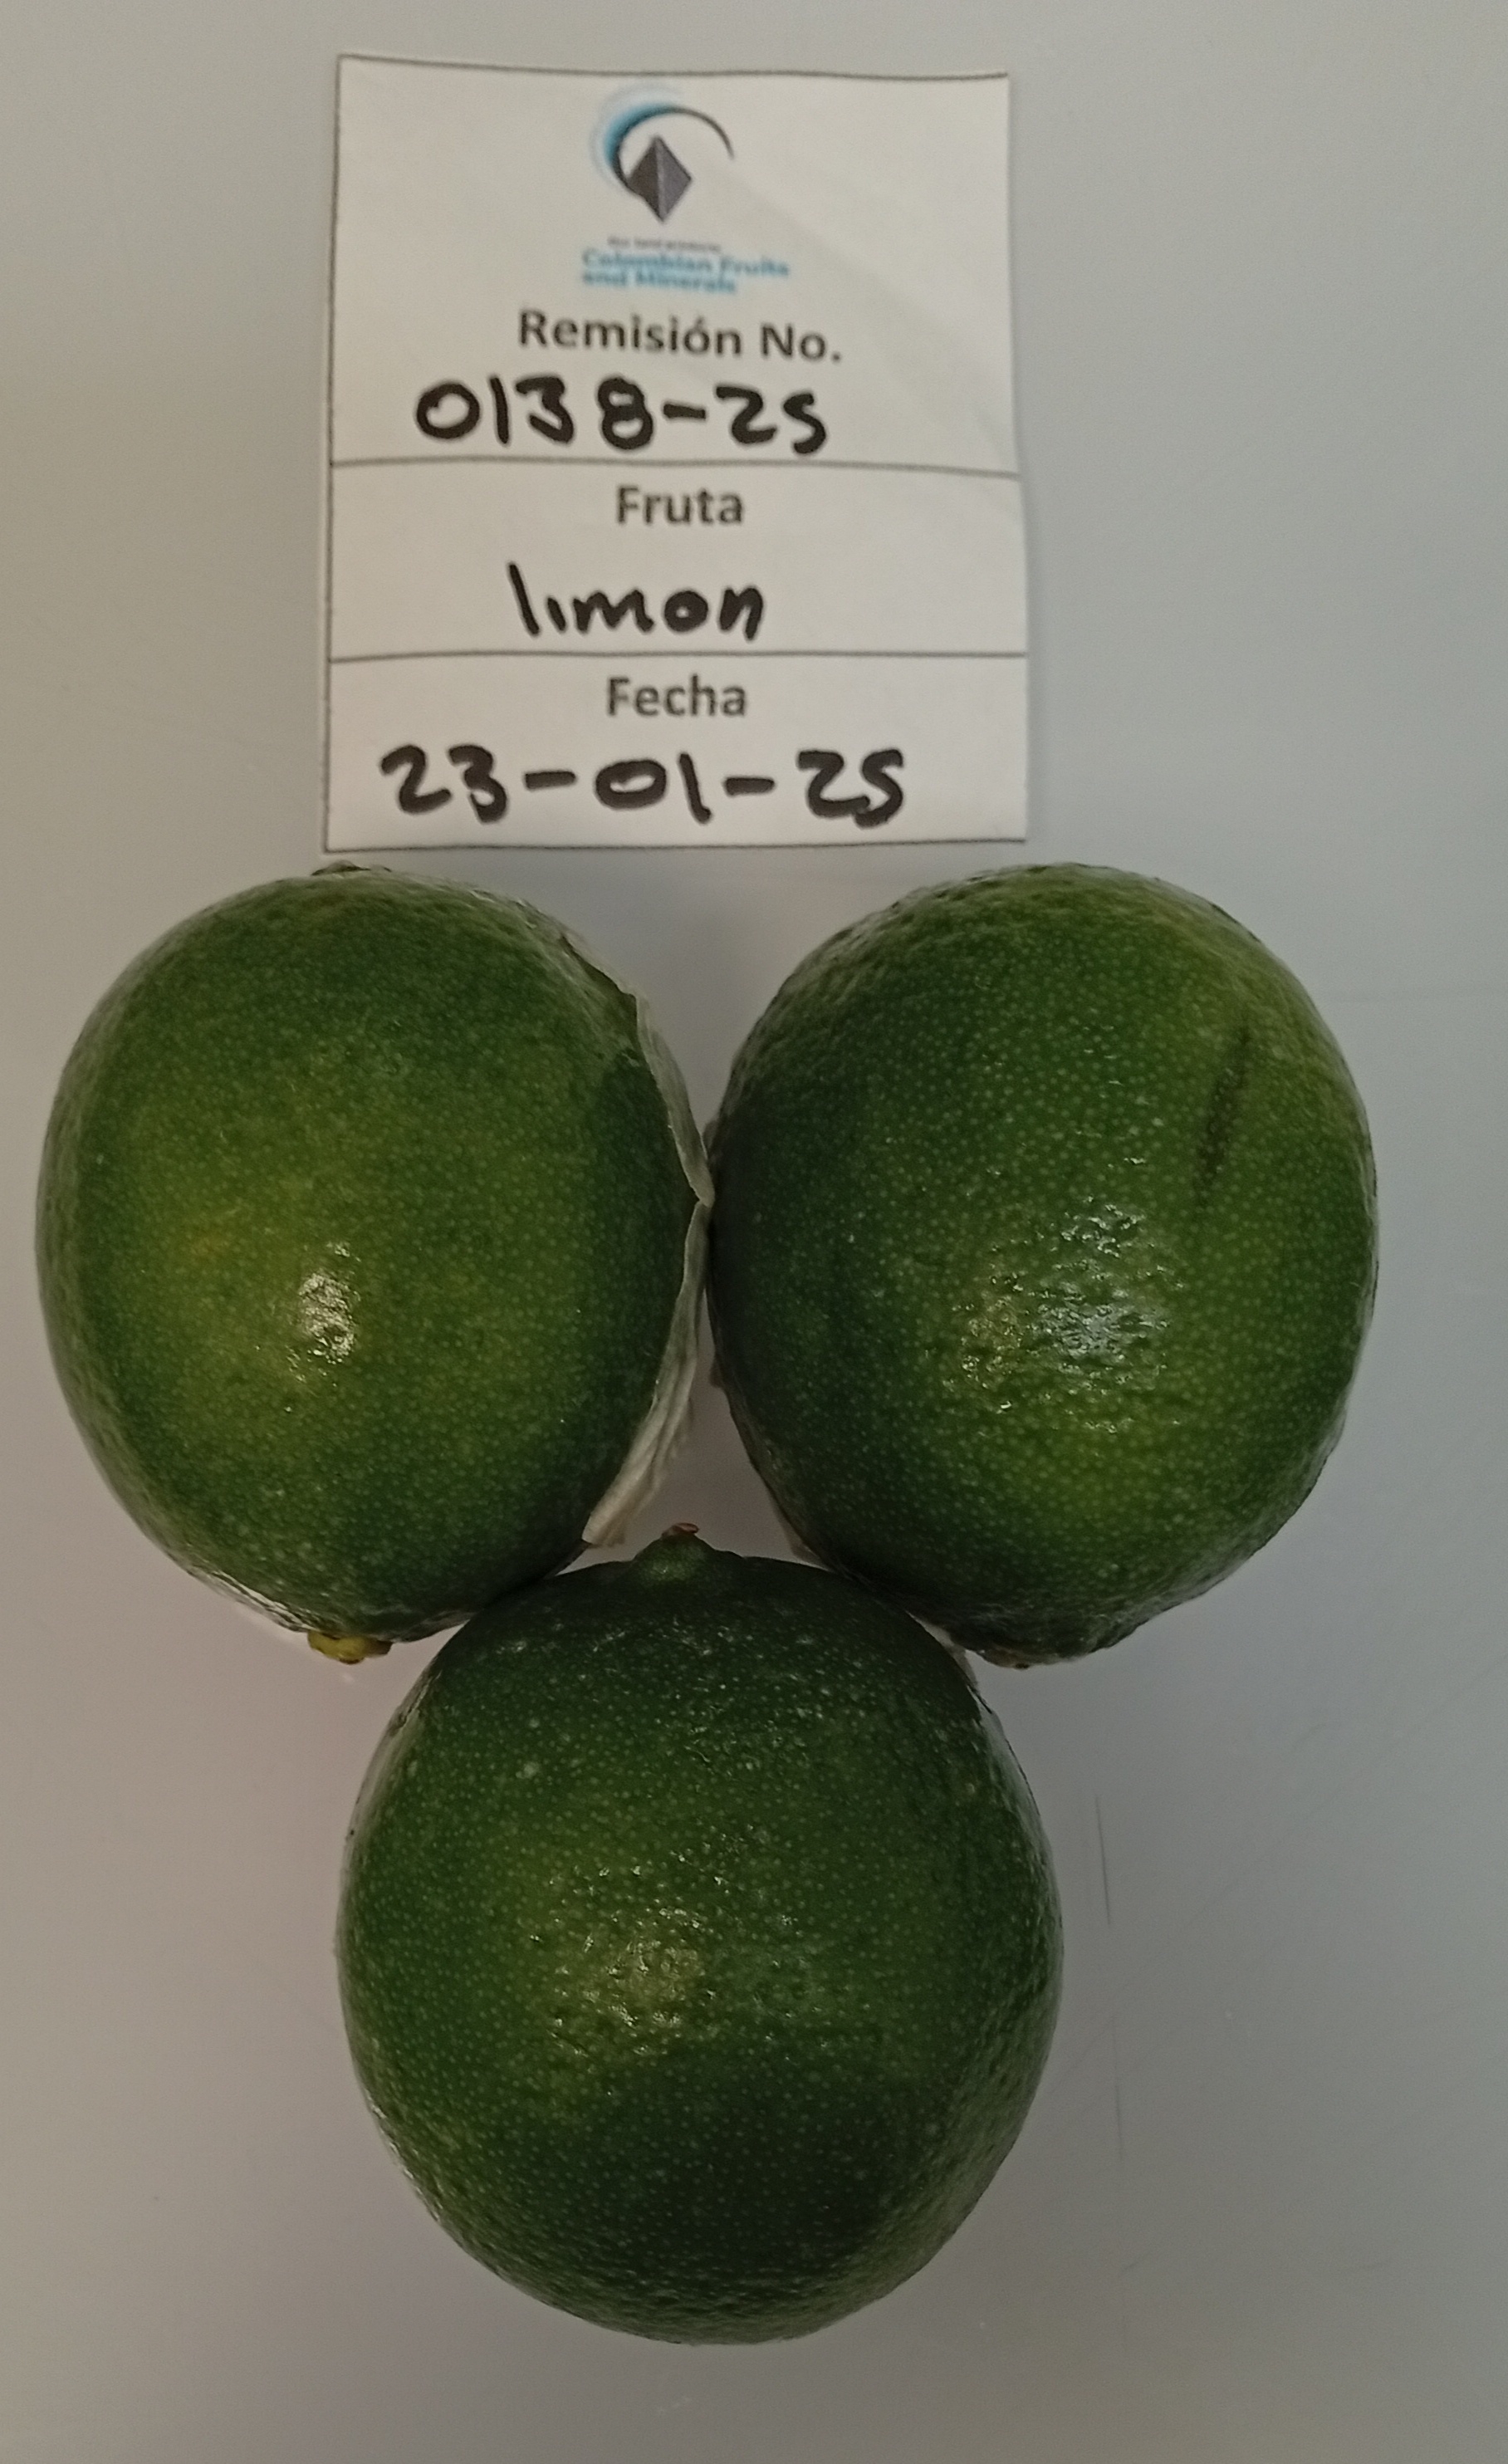 Colombian Fruits
and Minerals
Remisión No.
0138-25
Fruta
limon
Fecha
23-01-25